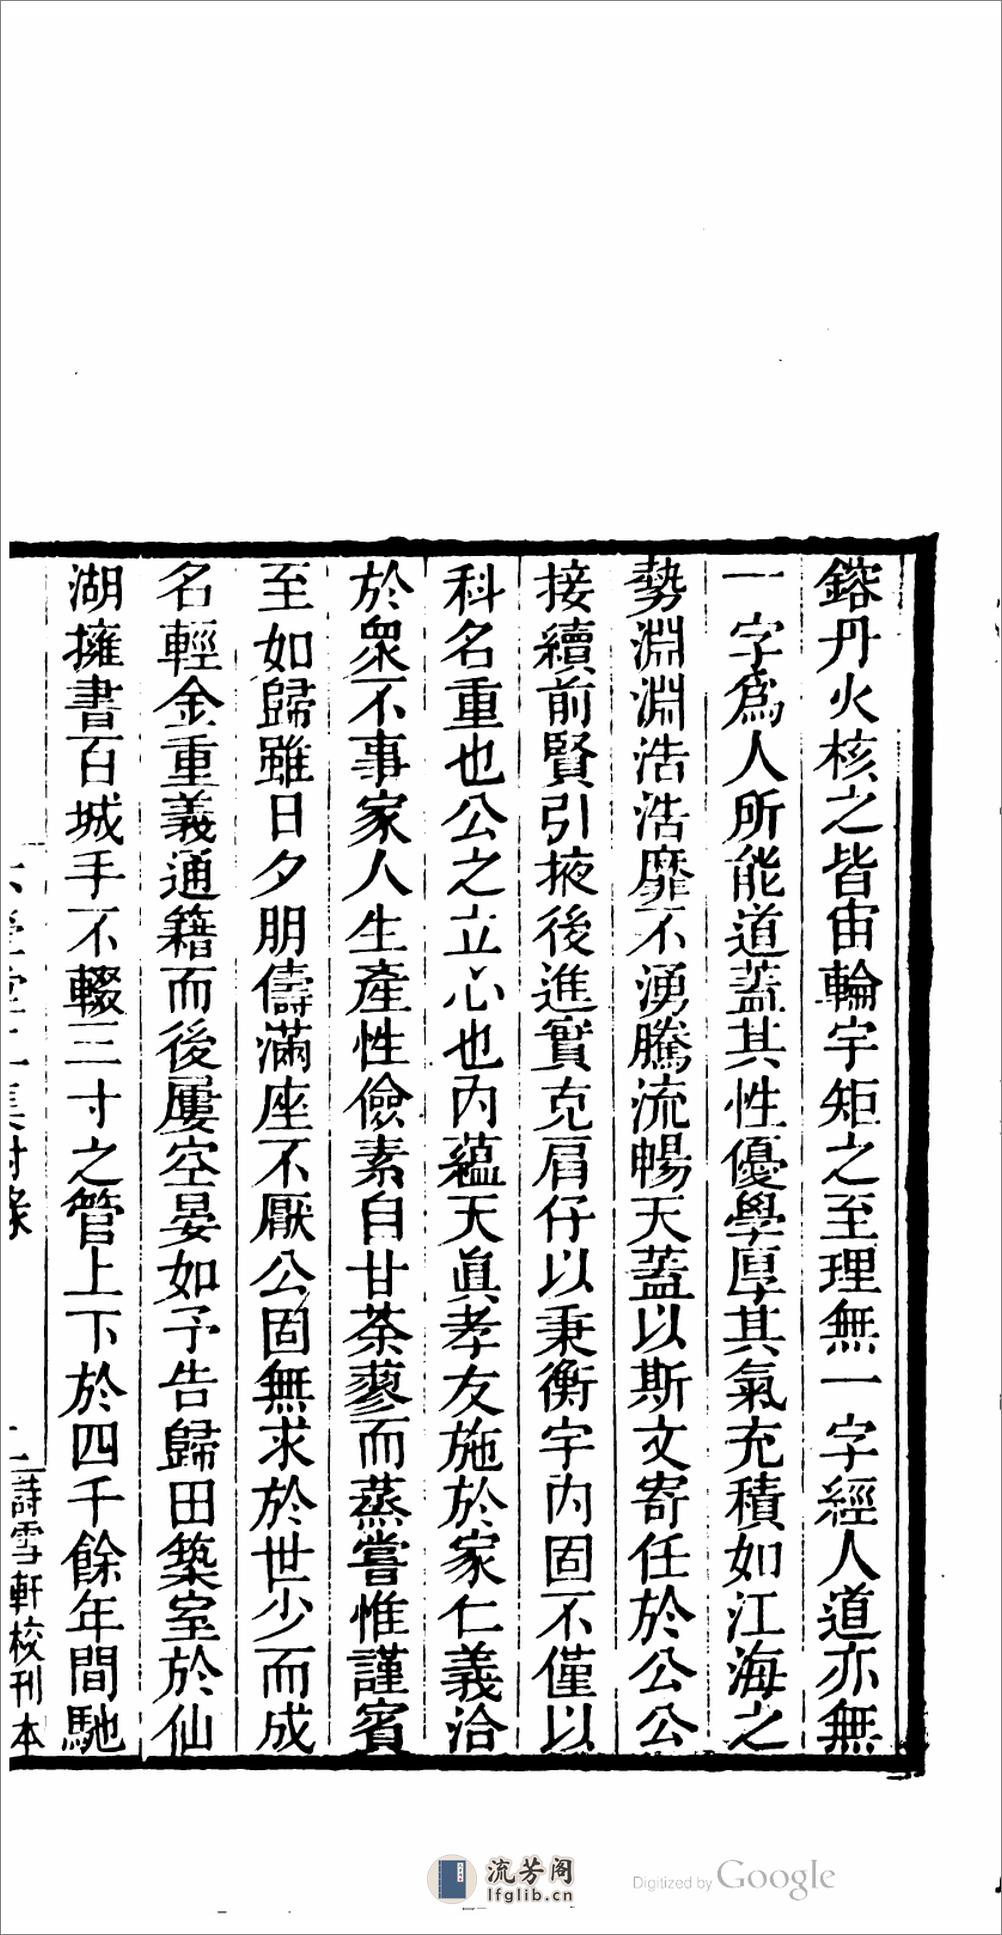 鎔丹火核之皆宙輪宇矩之至理無一字經人道亦無
一字爲人所能道蓋其性優學厚其氣充積如江海之
勢淵淵浩浩靡不湧騰流暢天蓋以斯文寄任於公公
接續前賢引掖後進實克肩仔以秉衡宇內固不僅以
科名重也公之立心也內蘊天眞孝友施於家仁義洽
於衆不事家人生產性儉素自甘荼蓼而蒸嘗惟謹賓
至如歸雖日夕朋儔滿座不厭公固無求於世少而成
名輕金重義通籍而後屢空晏如予告歸田築室於仙
湖擁書百城手不輟三寸之管上下於四千餘年間馳
集附錄
詩雪軒校刊本
流芳阁
lfglib.cn
Digitized by Google